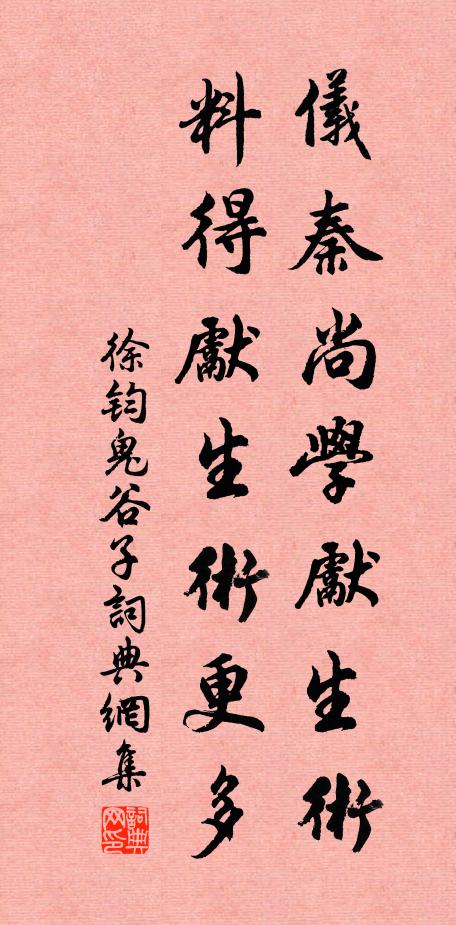 儀秦尚學獻生術
料得獻生術更多
徐鈞鬼谷子詞典網集
詞典网印